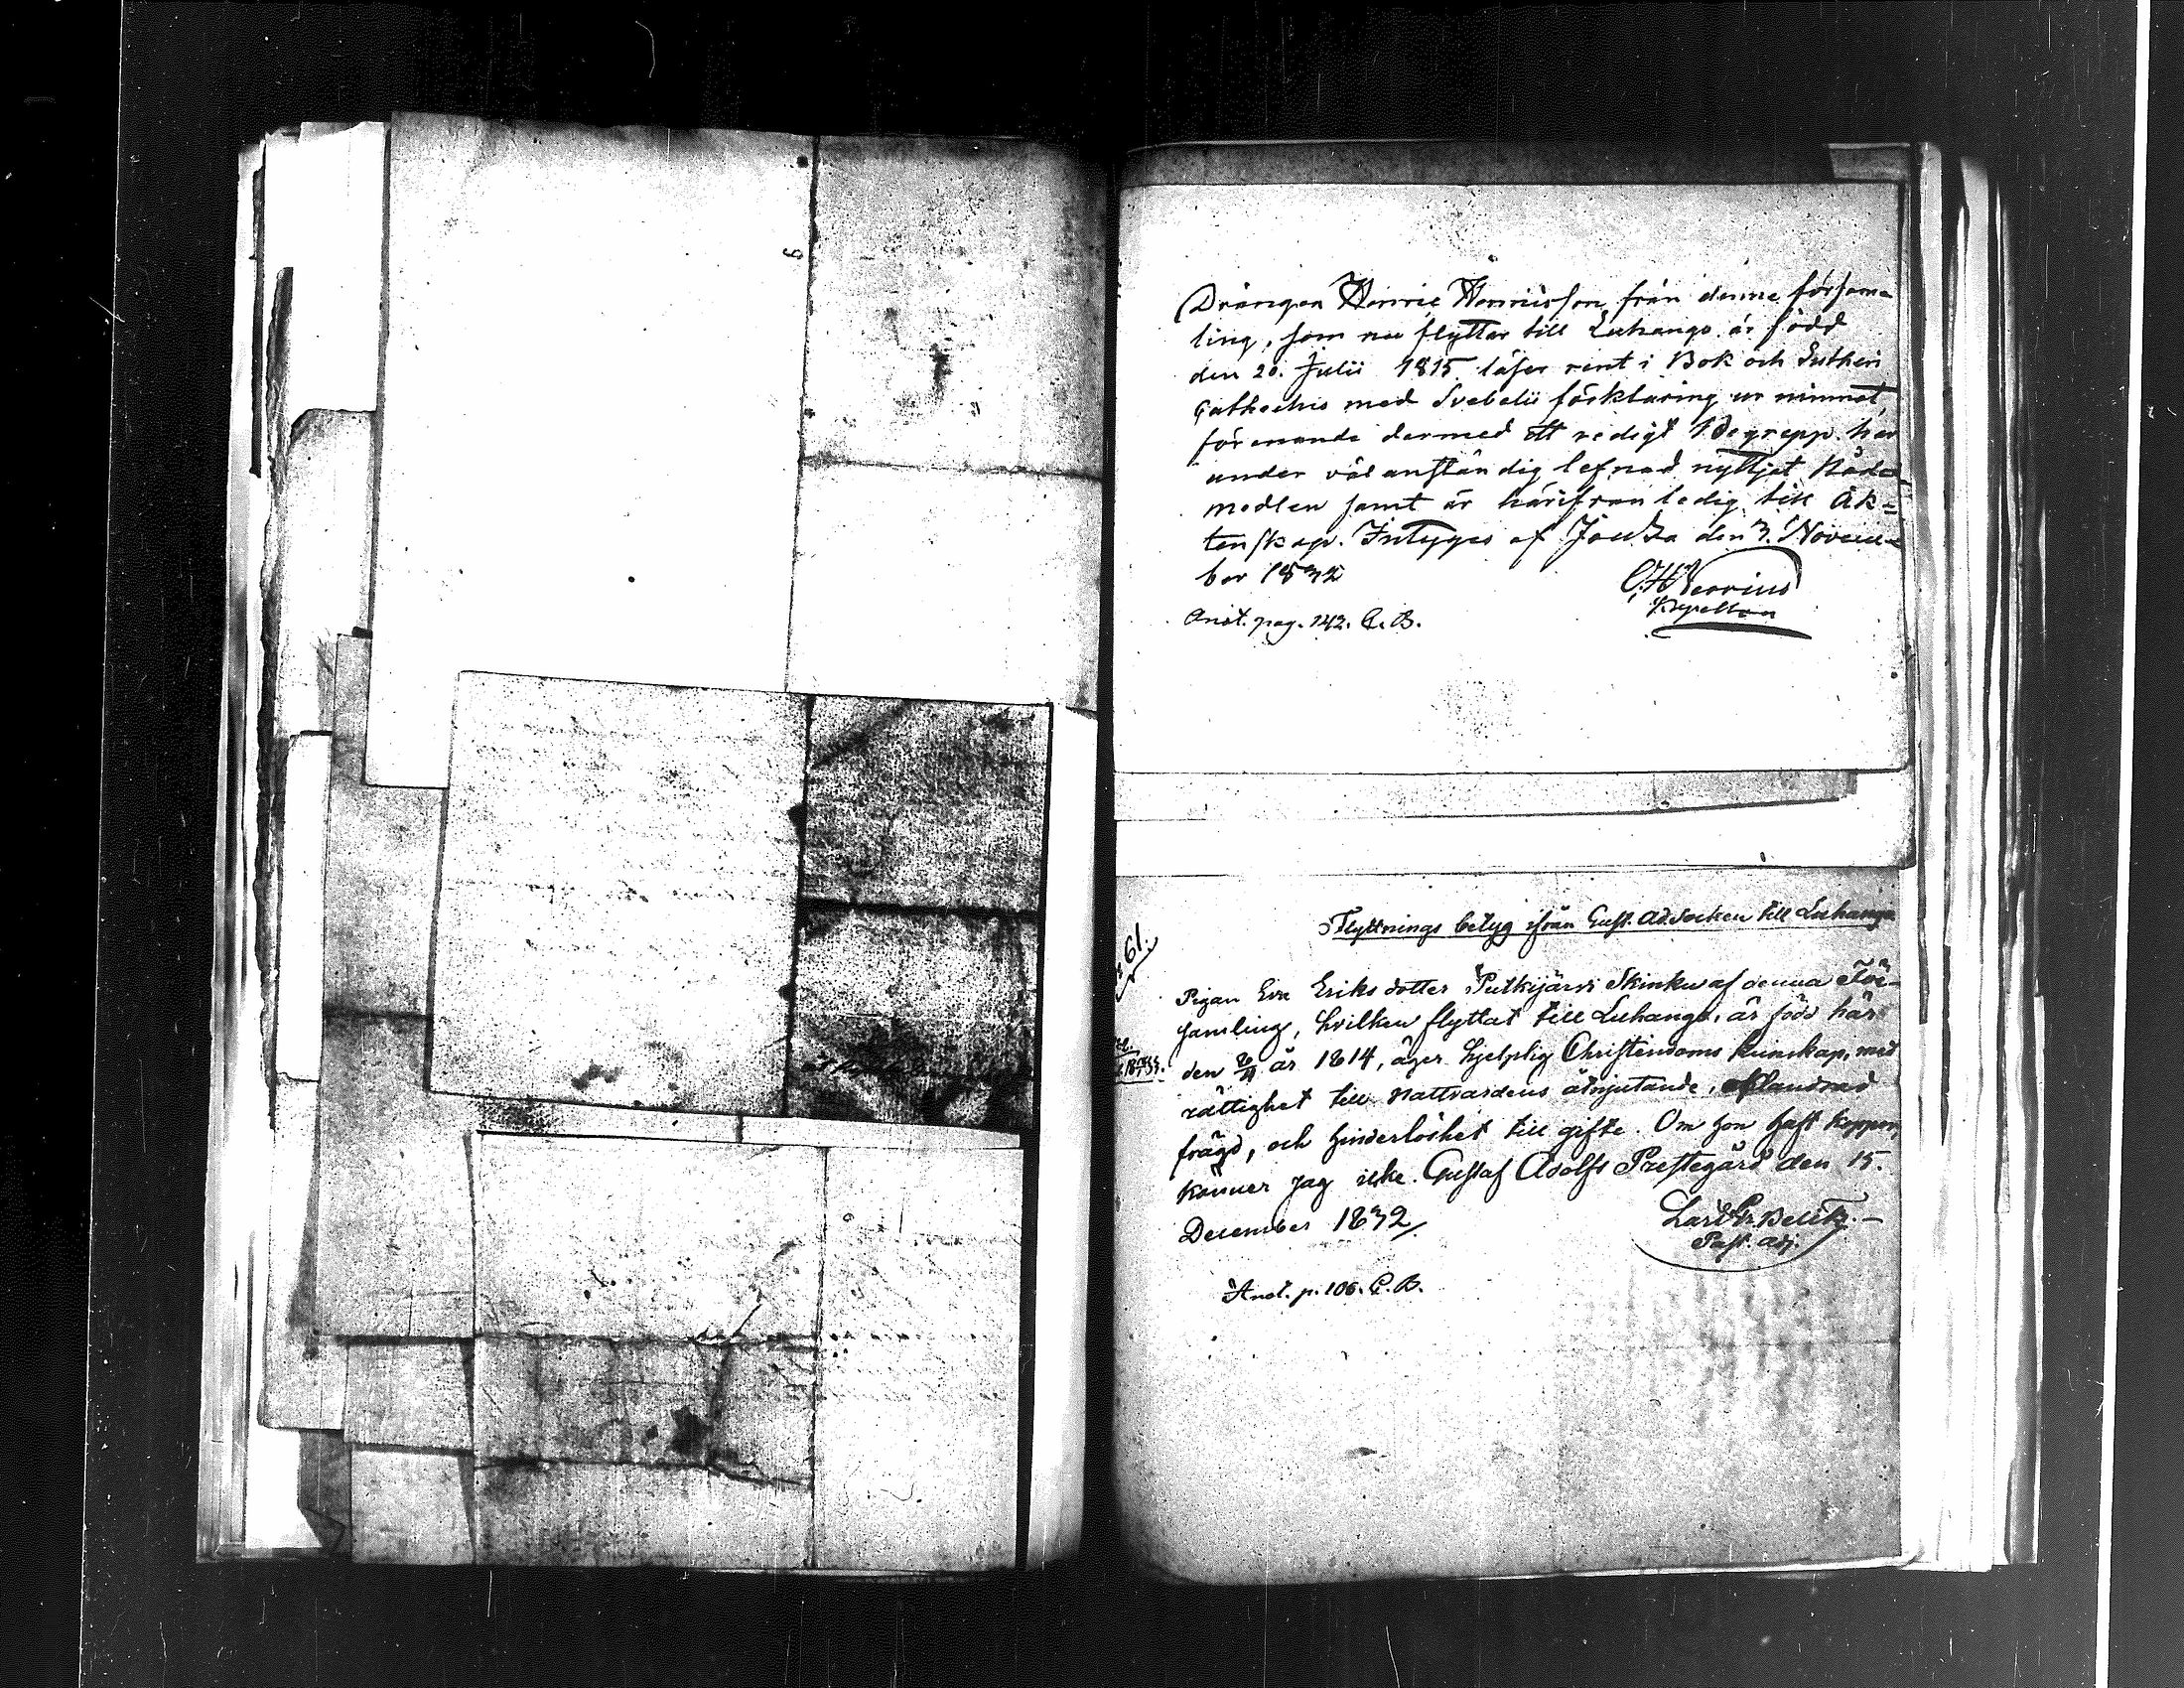 Drängen Henric Henricsson från denne försam=
ling, som nu flyttar till Luhango är född
den 20. Julii 1815 läser rent i Bok och Lutheri
Cathechis med Svebelii förklaring ur minnet,
förenande dermed ett redigt Begrepp. har
under välanständig lefnad nyttjat Nåde=
medlen samt är härifrån ledig till Äk=
tenskap. Intyges af Joutza den 3. Novem=
ber 1832
Kapellan
Anot. pag. 142. C. B.
Flyttnings betyg ifrån Gust. Ad. Socken till Luhango
61.
Pigan Eva Eriksdotter Putkijärvi Skinku af denna För=
samling, hvilken flyttat till Luhango, är född här
den år 1814, äger hjelplig Christendoms kunskap, med
rättighet till Nattvardens åtnjutande,
frägd, och hinderlöshet till gifte. Om hon haft koppor,
känner jag icke. Gustaf Adolfs Prestegård den 15.
December 1832
Past. Adj.
Anot. p. 106. C. B.